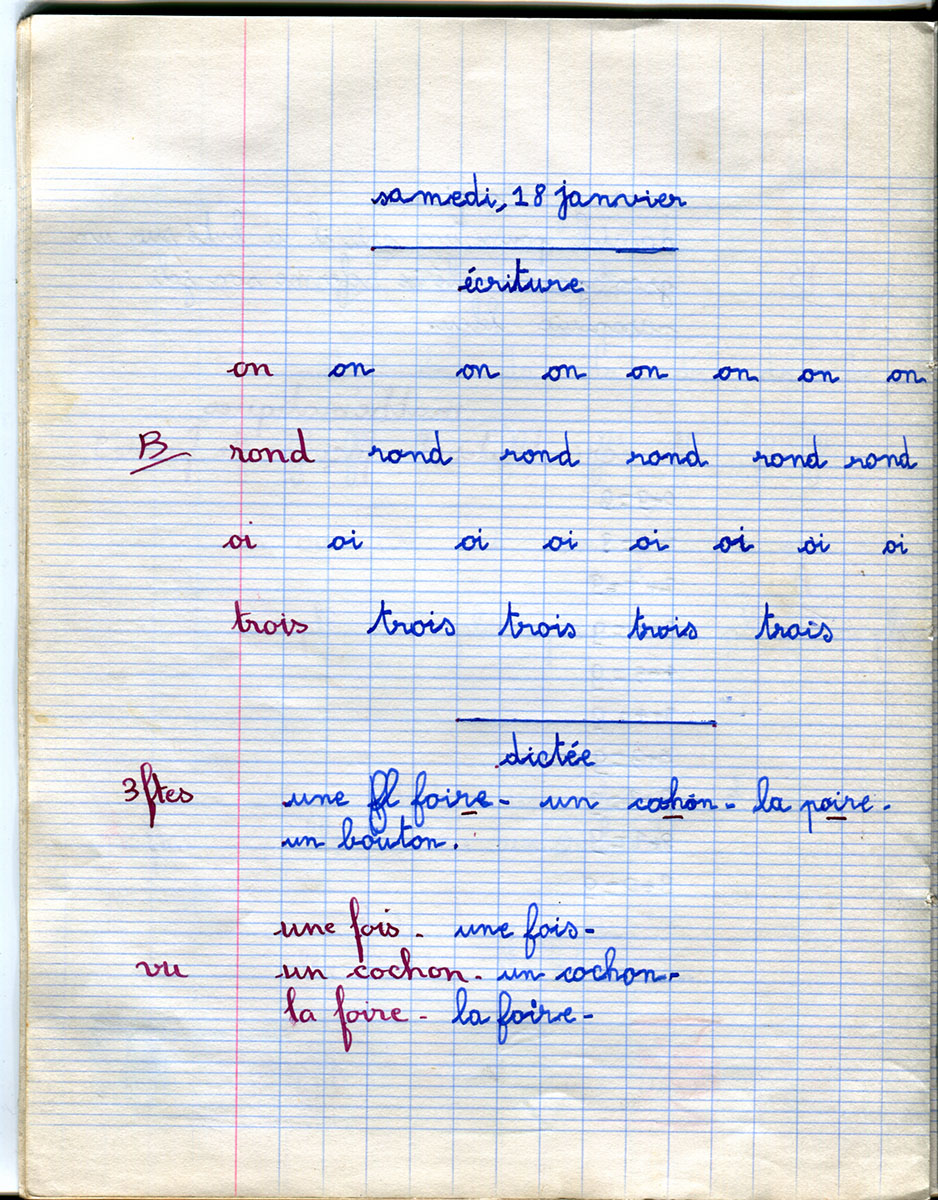 samedi, 18 janvier
écriture
on on on on on on on on
B rond rond rond rond rond rond
oi oi oi oi oi oi oi oi
trois trois trois trois trois
dictée
3 ftes une fl foire - un cahon - la poire -
un bouton.
une fois - une fois -
vu un cochon - un cochon -
la foire - la foire -